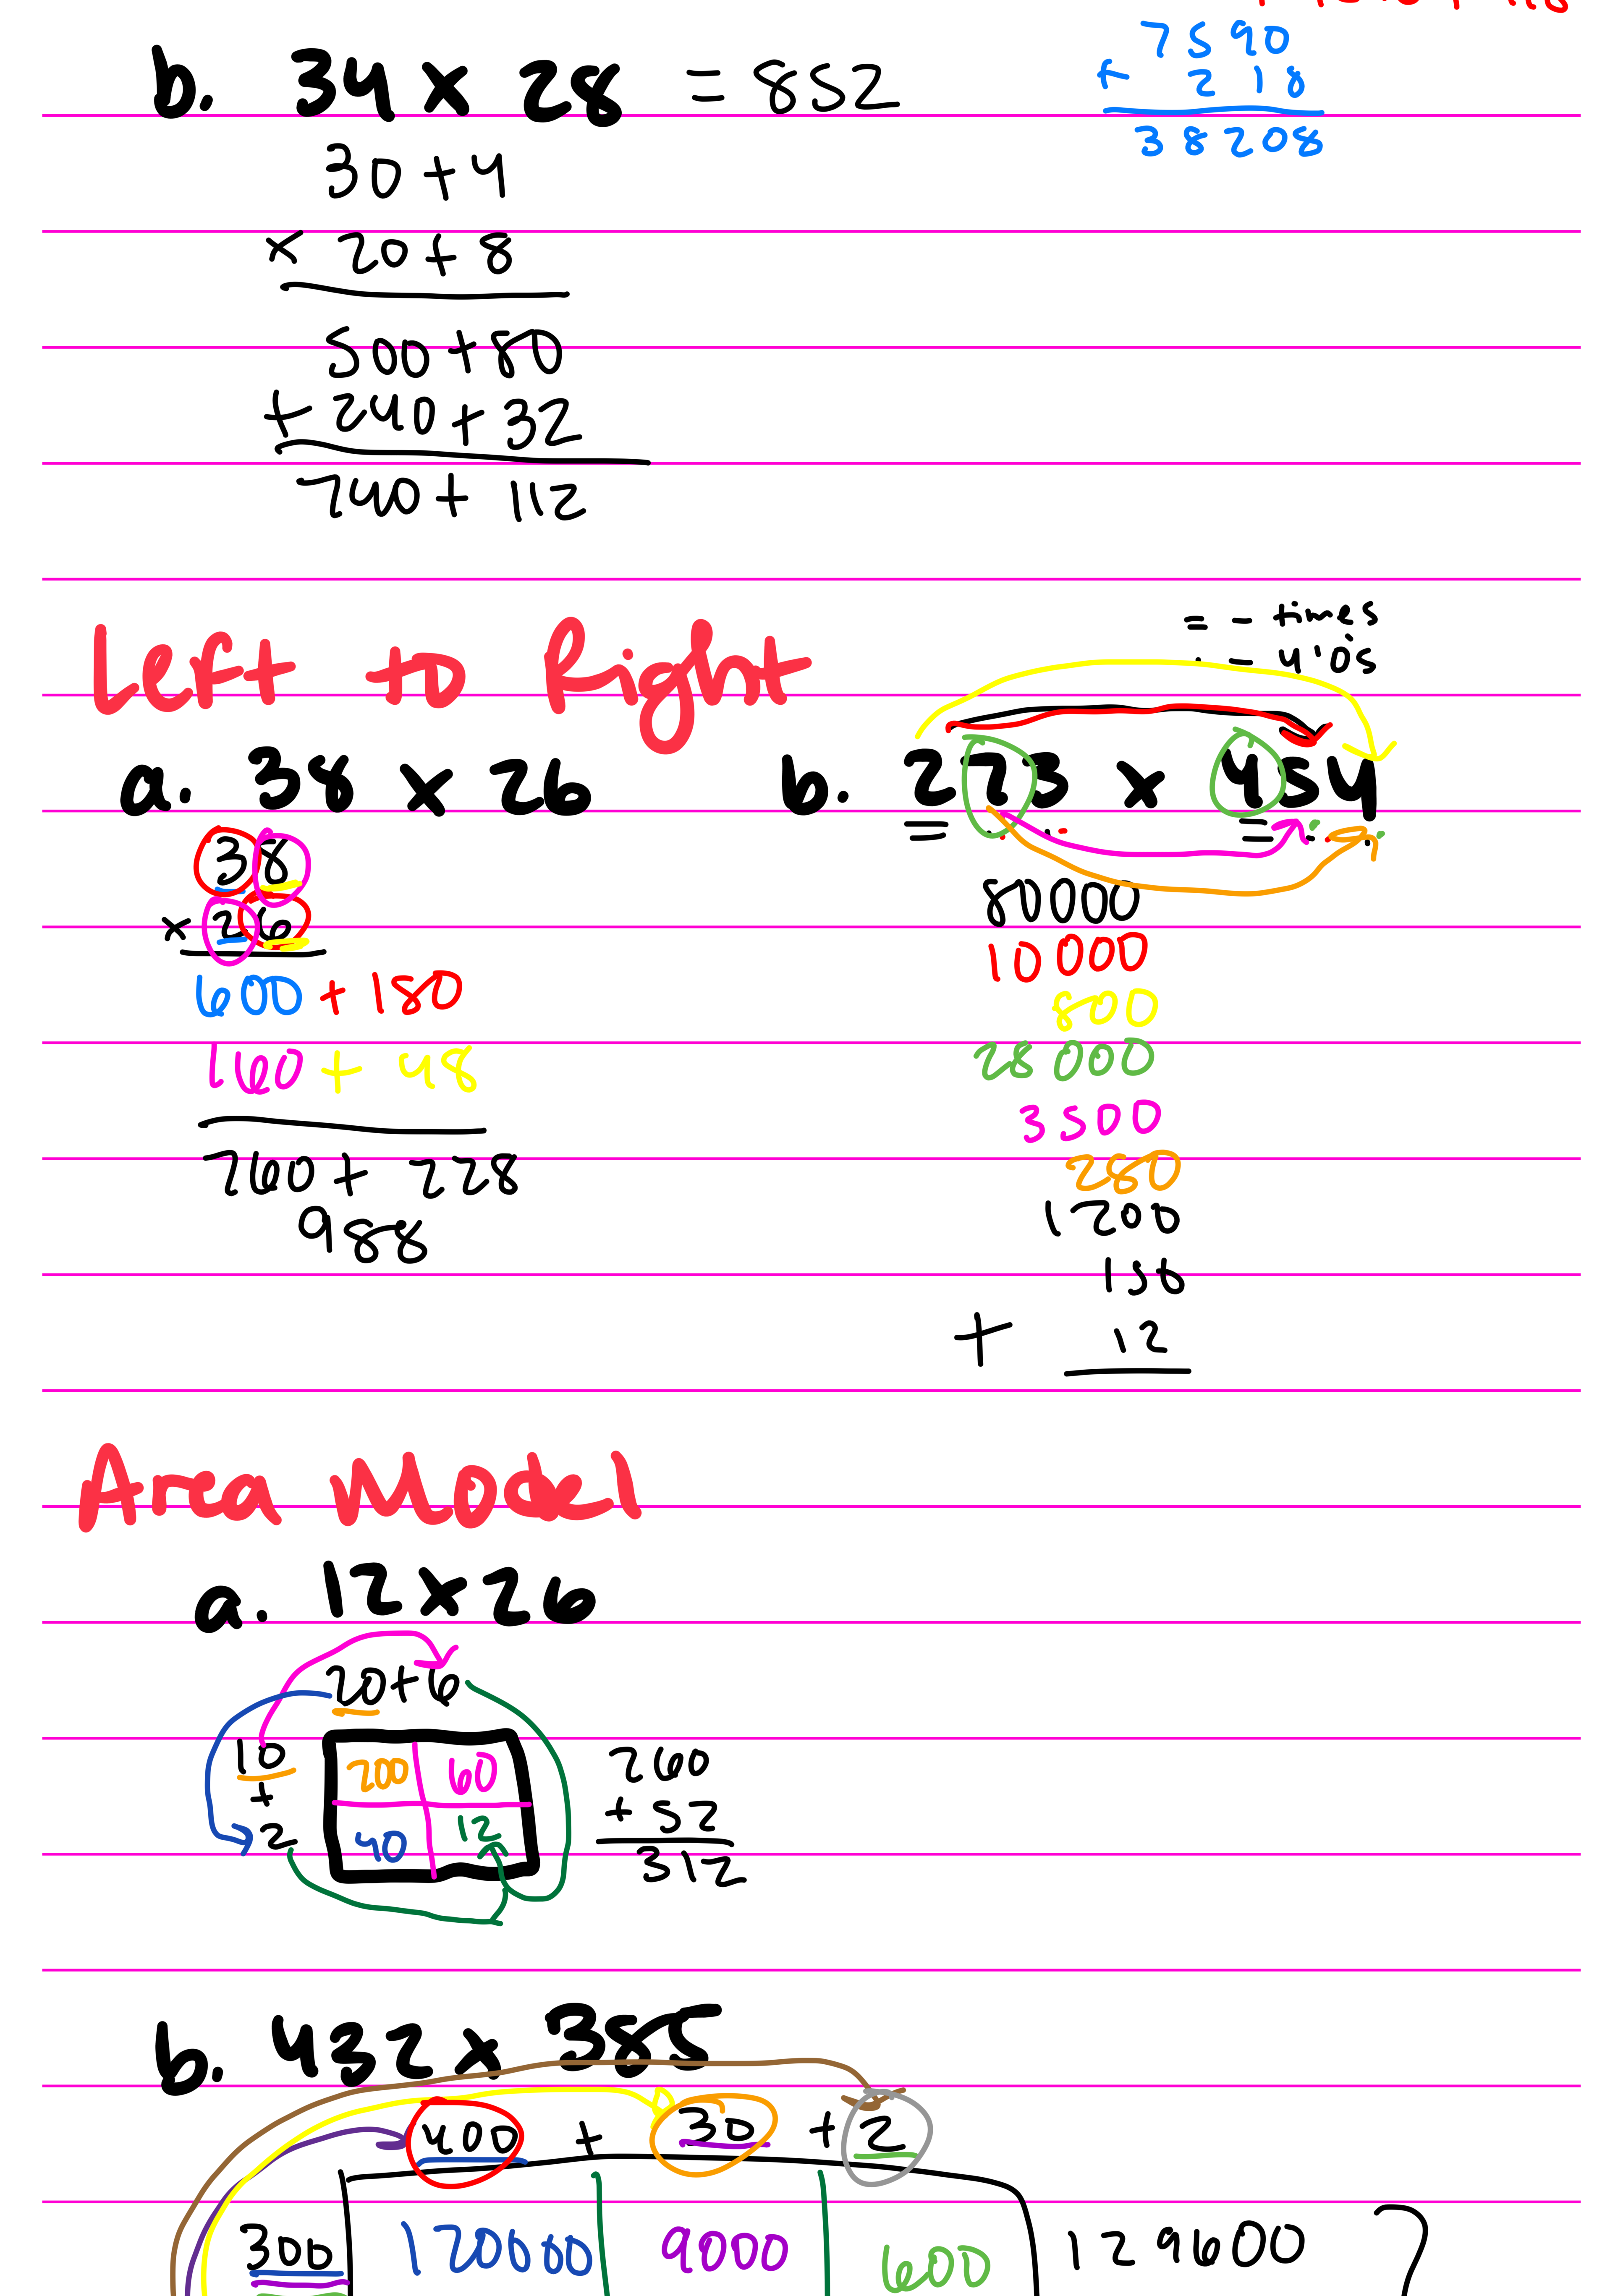 b. 34 x 28 = 852
30 + 4
x 20 + 8
500 + 80
+ 240 + 32
740 + 112
7590
+ 218
38208
Left to Right
= - times
. - 4 0's
a. 38 x 26
38
x 26
600 + 180
160 + 48
760 + 228
988
b. 273 x 454
80000
10000
800
28000
3500
280
1200
150
+ 12
Area Model
a. 12 x 26
20 + 6
10
+
2
200 60
40 12
260
+ 52
312
b. 432 x 385
400 + 30 + 2
300 120000 9000 600 129600